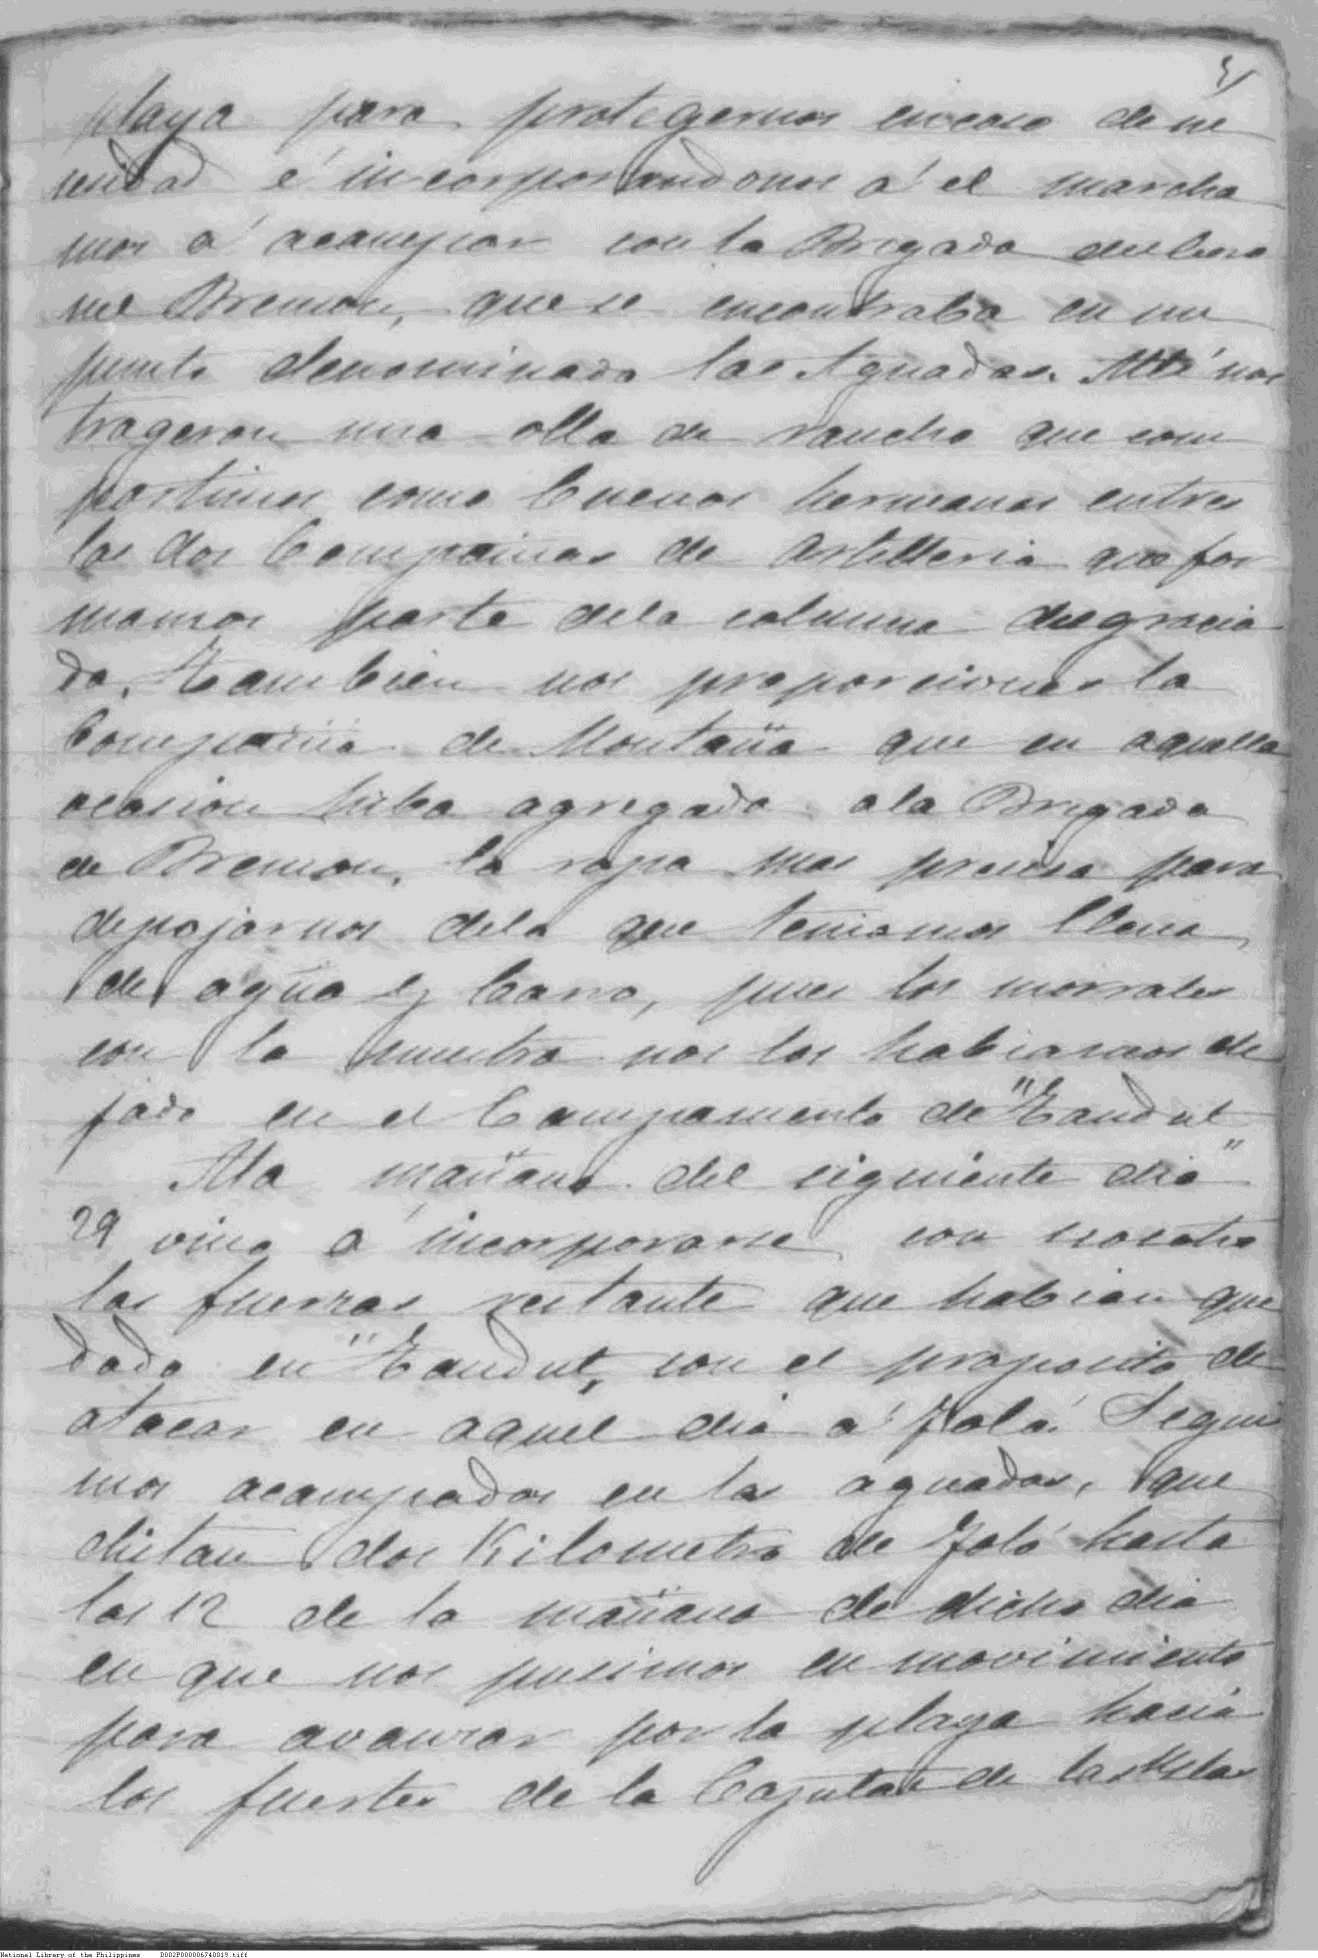 playa para protegernos encaso de ne
cesidad é incorporandonos á el marcha
mos á acampar con la Brigada del Coro
nel Bremon, que se encontraba en un
punto denominado las Aguadas. Alli nos
trageron una olla de rancho que com
partimos como buenos hermanos entre
las dos Compañias de Artilleria que for
mamos parte dela columna desgracia
da. Tambien nos proporciono la
Compañia de Montaña que en aquella
ocasion hiba agregada ala Brigada
de Bremon, la ropa mas precisa para
depojarnos dela que teniamos llena
de agua y barro, pues los morrales
con la nuestra nos los habiamos de
jado en el Campamento de "Tandul"
Ala mañana del siguiente dia
29 vino á incorporarse con nosotros
las fuerzas restante que habian que
dado en "Tandul", con el proposito de
atacar en aquel dia á Joló. Segui
mos acampados en las aguadas, que
distan dos Kilometros de Joló hasta
las 12 de la mañana de dicho dia
en que nos pusimos en movimiento
para avanzar por la playa hacia
los fuertes de la Capital de las Islas
National Library of the Philippines D002P000006740019.tiff